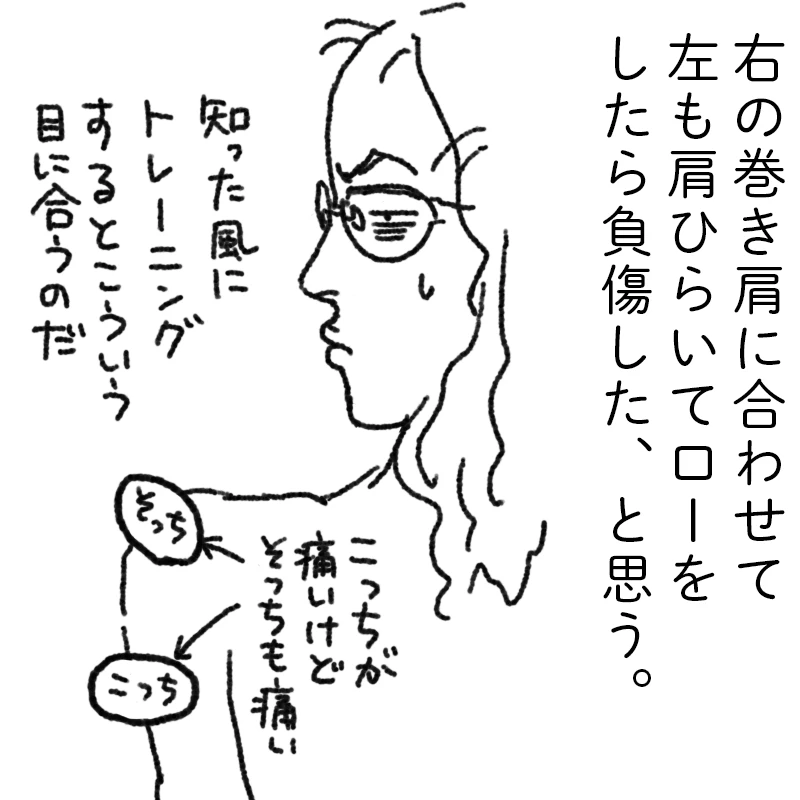 右の巻き肩に合わせて
左も肩ひらいてローを
したら負傷した、と思う。
知った風に
トレーニング
するとこういう
目に合うのだ
そっち
こっちが
痛いけど
そっちも痛い
こっち